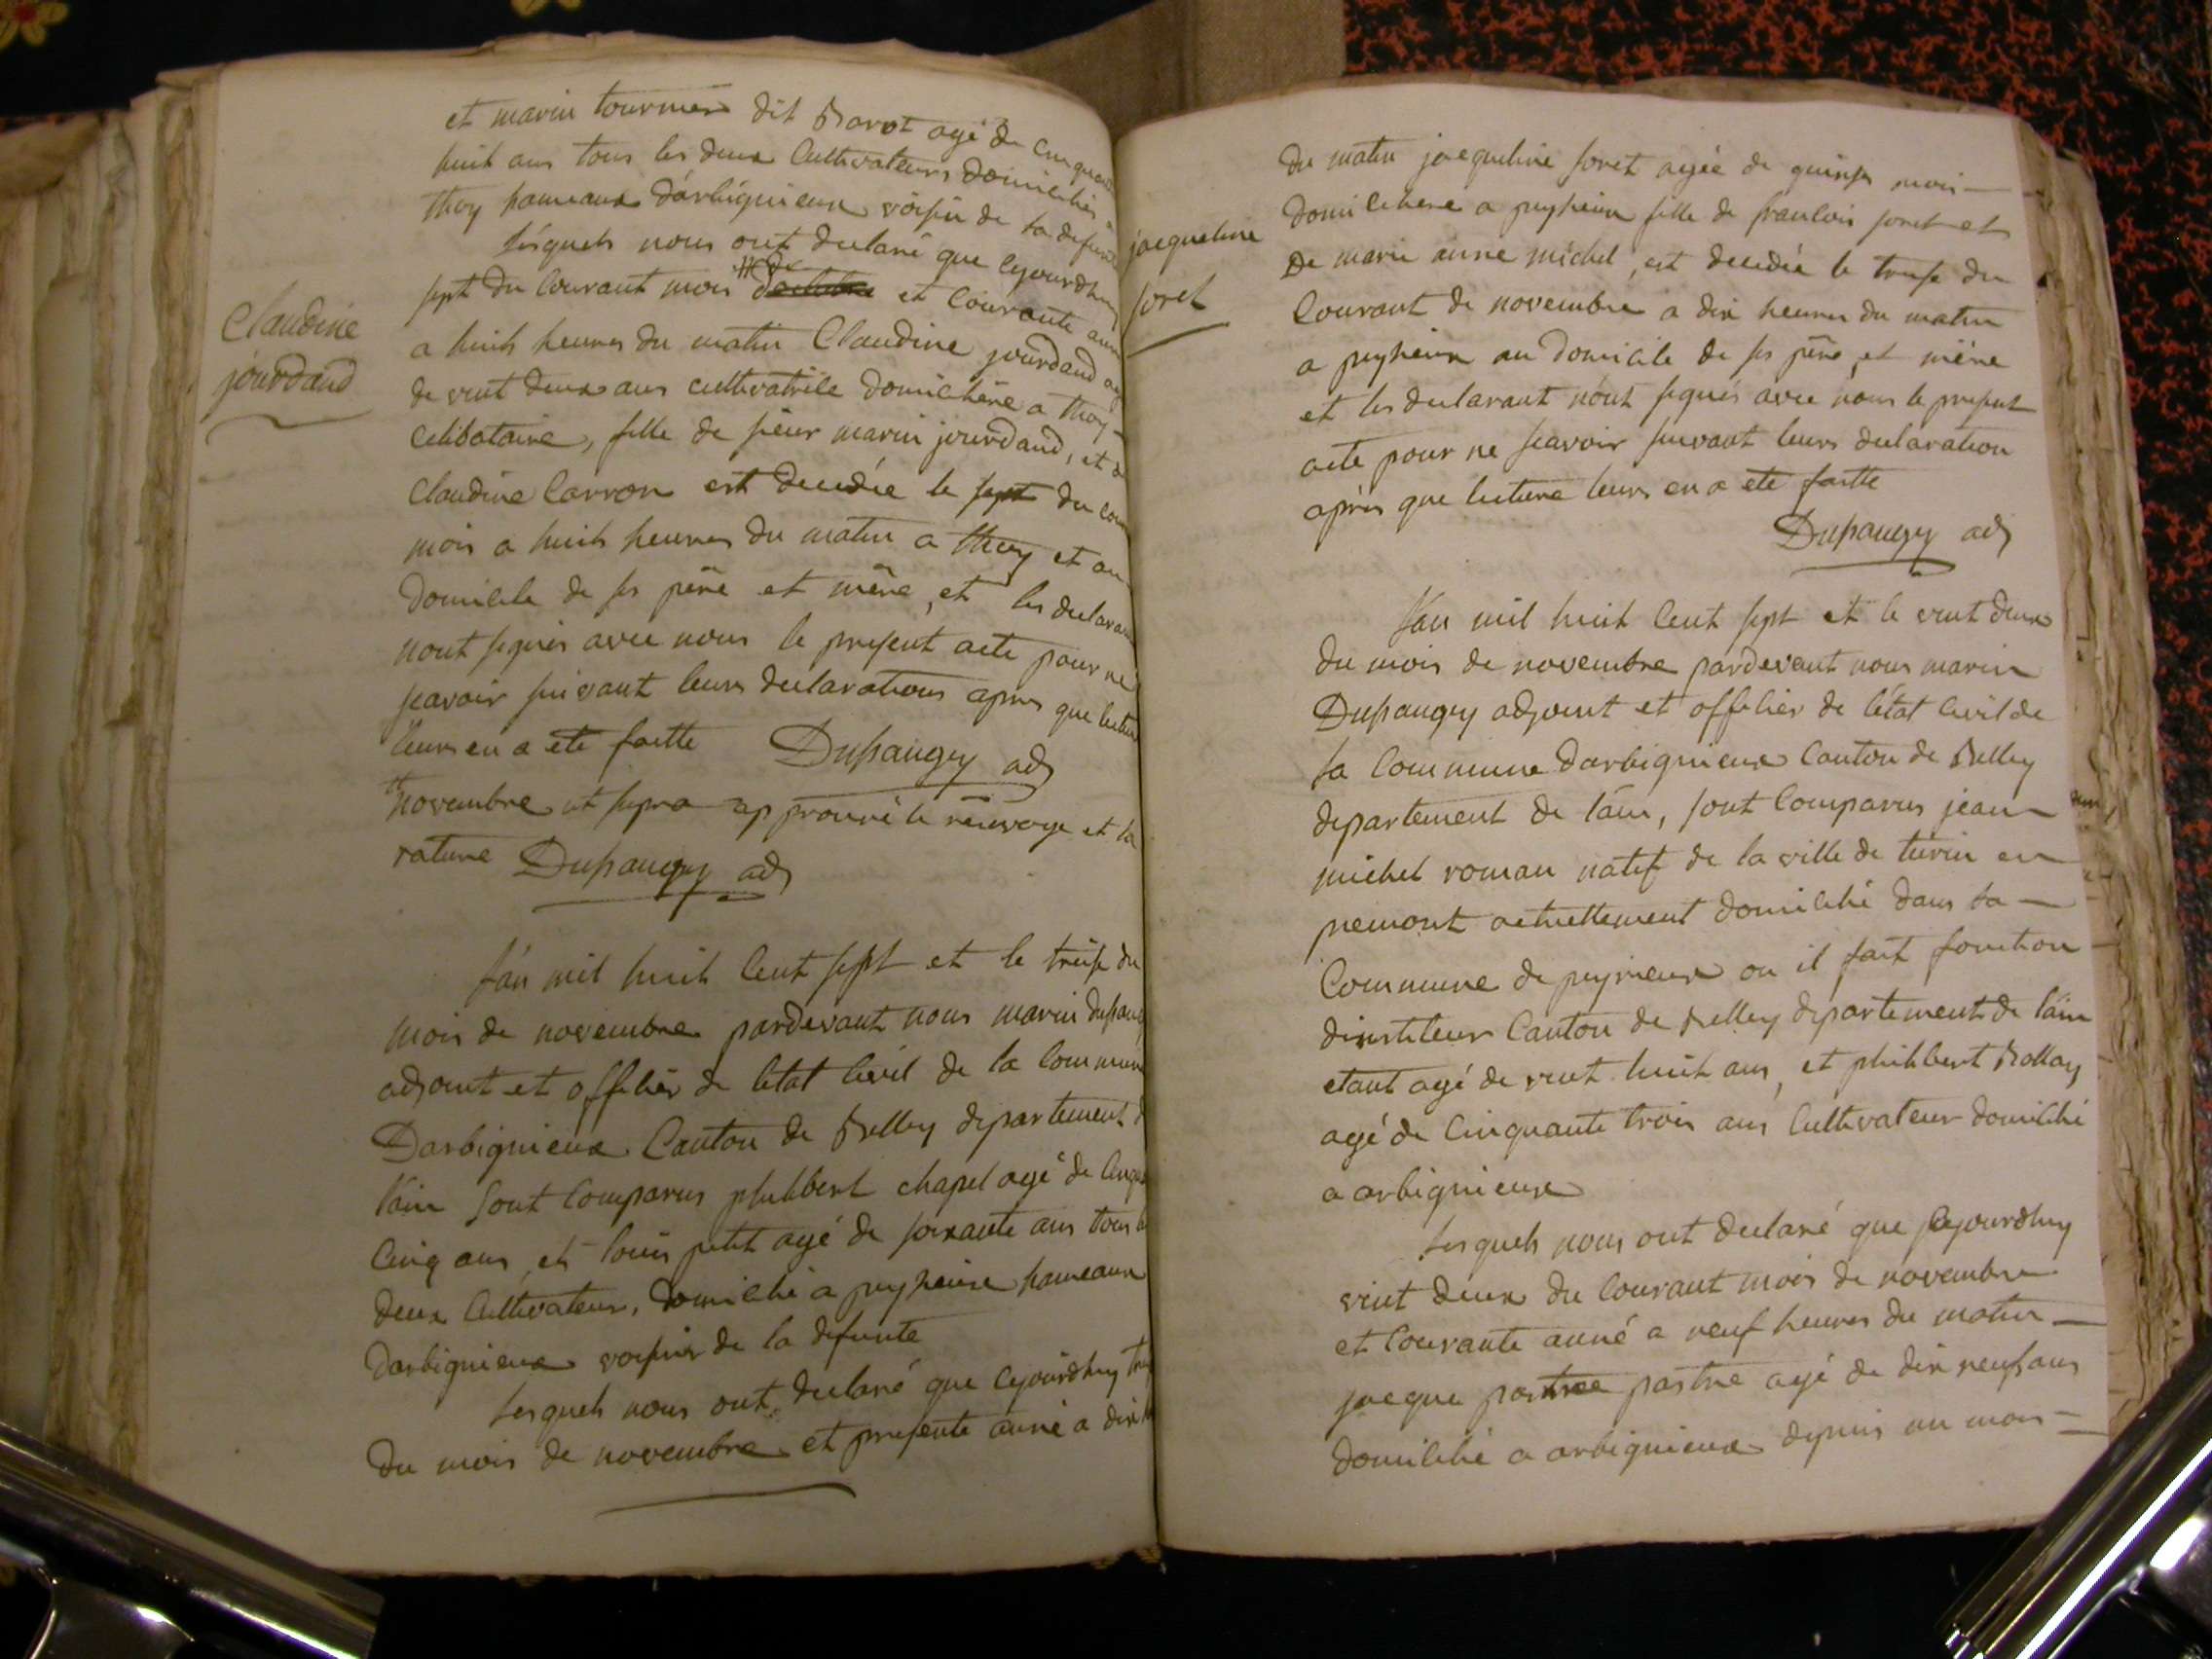 et marin tournier dit Barot agé de cinquante
huit ans tous les deux Cultivateurs domicilies a
thoy hameaux d'arbignieux voisin de la defunte
Lésquels nous ont declaré que cejourdhuy
sept du Courant mois doctobre et Courante anné
a huit heures du matin Claudine jourdand agé
de vint deux ans cultivatrice domiciliére a thoy
Celibataire, fille de sieur marin jourdand, et de
Claudine Carron est decedée le sept du cour
mois a huit heures du matin a thoy et au
domicile de ses pére et mére, et les declarant
nont signés avec nous le present acte pour ne
scavoir suivant leurs declarations apres que lecture
leurs en a ete faitte Dupaugey adj
novembre ut supra approuvé le renvoye et la
rature Dupaugey adj
Claudine
jourdand
L'an mil huit Cent sept et le treise du
mois de novembre pardevant nous marin dupaug
adjoint et officier de létat Civil de la Commune
Darbignieux Canton de Belley departement d
l'ain sont Comparus philibert chapel agé de Cinqu
Cinq ans, et louis petit agé de soixante ans tous les
deux Cultivateurs, domicilié a peyzieux hameaux
Darbignieux voisins de la defunte
Lesquels nous ont declaré que Cejourdhuy treise
du mois de novembre et presente anné a dix h
jacqueline
soret
du matin jacqueline soret agée de quinse mois
domiciliere a peyzieux fille de francois soret et
de marie anne michel, est decedée le treise du
Courant de novembre a dix heures du matin
a peyzieux au domicile de ses pére et mére
et les declarant n'ont signés avec nous le present
acte pour ne scavoir suivant leurs declaration
aprés que lecture leurs en a ete faitte
Dupaugey adj
L'an mil huit Cent sept et le vint deux
du mois de novembre pardevant nous marin
Dupaugey adjoint et officier de létat Civil de
la Commune darbignieux Canton de Belley
departement de l'ain, sont Comparus jean
michel roman natif de la ville de turin en
piemont actuellement domicilié dans la
Commune de peyrieux ou il fait fonction
dinstiteur Canton de Belley departement de l'ain
etant agé de vint huit ans, et philibert Bollay
agé de Cinquante trois ans Cultivateur domicilié
a arbignieux
Lesquels nous ont declaré que Cejourdhuy
vint deux du Courant mois de novembre
et Courante anné a neuf heures du matin
jacque pastre agé de dix neuf ans
domicilié a arbignieux depuis un mois